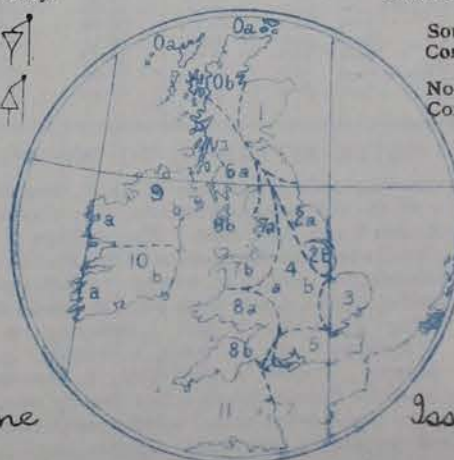 Sou
Con
No
Co
0a
0a
0b
6a
9
b
a
6b
7a
2a
2b
10
b
a
7b
4
a
b
3
8a
8b
5
11
ne
Iss